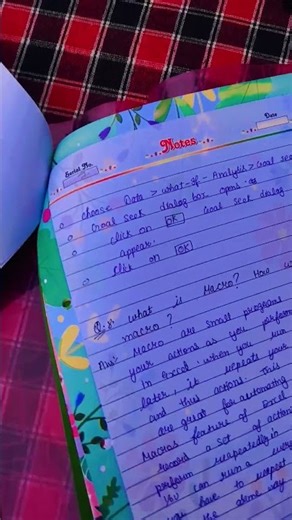 Serial No.
Notes
Date
choose Data > What-If-Analysis > Goal see
Goal Seek dialog box opens as
click on OK Goal Seek dialog
appear.
Click on OK
Q.8: What is Macro? How w
macro?
Ans: Macro are small program
your actions as you perform
in Excel. When you run
later, it repeats your
and this actions. This
are great for automating
Macros feature of Excel
record a set of action
perform repeatedly in
You can run a
you have to repeat
the same way